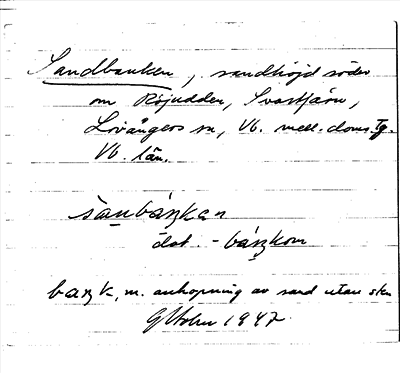 Sandbanken, sandhöjd söder
om Röjudden, Svartjärn,
Lövångers sn, Vb. mell. doms. tg.
Vb. län.
sa̱nbáŋkan
dat. -báŋkom
baŋk, m. anhopning av sand utan sten
G Holm 1947.